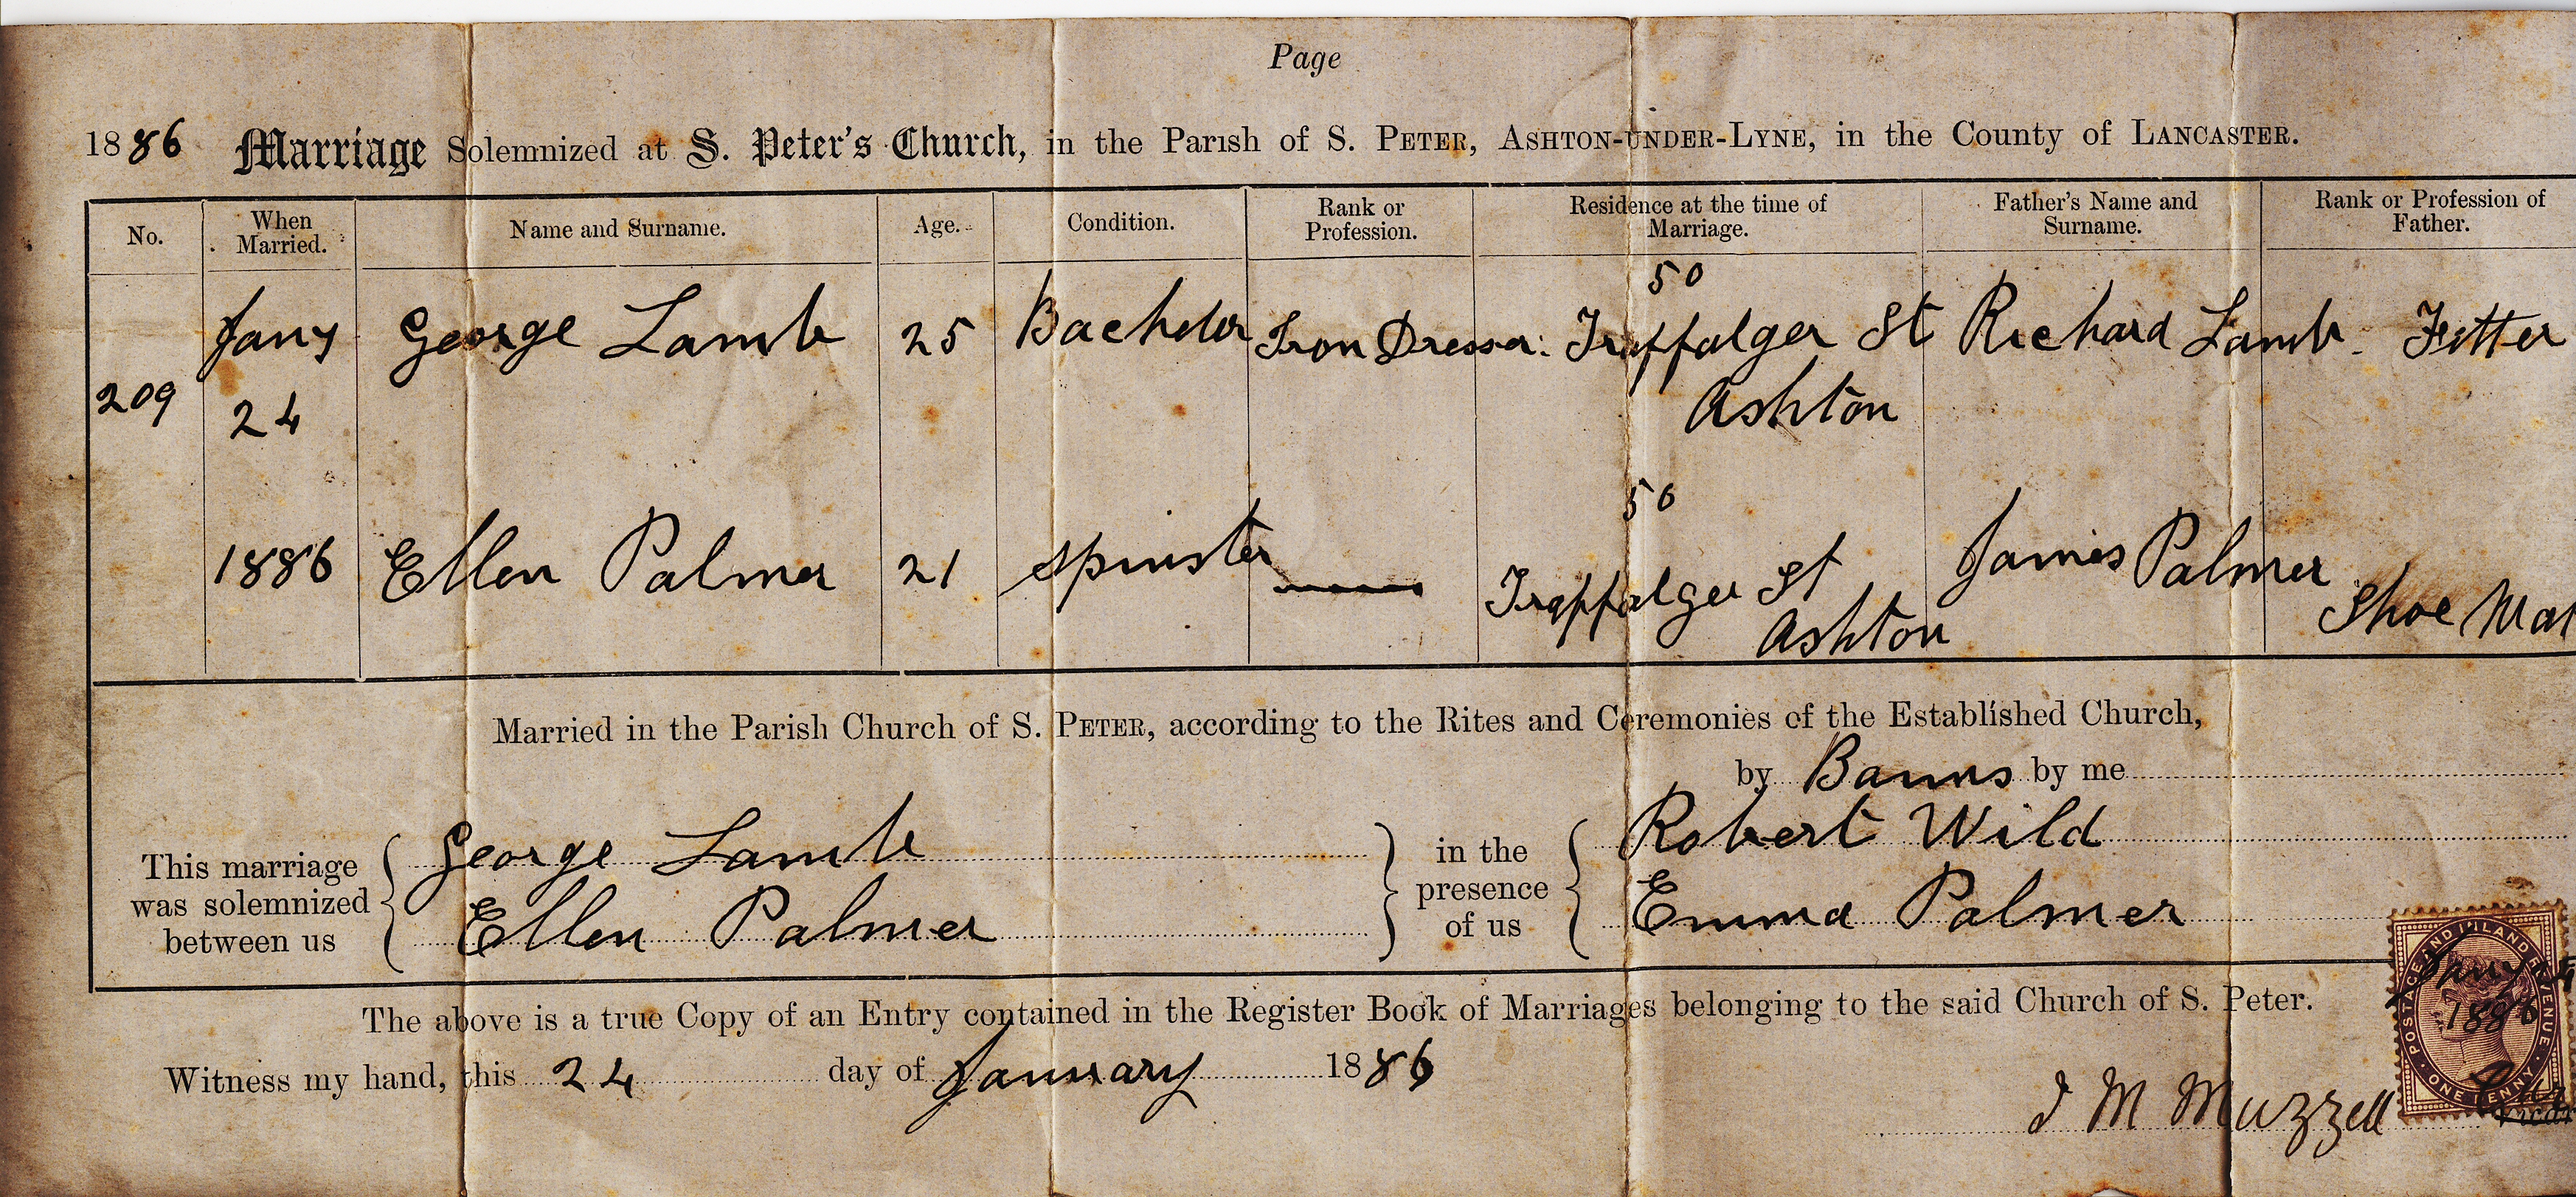 Page
1886 Marriage Solemnized at S. Peter's Church, in the Parish of S. PETER, ASHTON-UNDER-LYNE, in the County of LANCASTER.
No. When Married. Name and Surname. Age. Condition. Rank or Profession. Residence at the time of Marriage. Father's Name and Surname. Rank or Profession of Father.
209 Jany 24 1886
George Lamb 25 Bachelor Iron Dresser. 50 Traffalger St Ashton Richard Lamb. Fitter
Ellen Palmer 21 Spinster — 50 Traffalger St Ashton James Palmer Shoe Mak
Married in the Parish Church of S. PETER, according to the Rites and Ceremonies of the Established Church,
by Banns by me
This marriage was solemnized between us { George Lamb Ellen Palmer } in the presence of us { Robert Wild Emma Palmer
The above is a true Copy of an Entry contained in the Register Book of Marriages belonging to the said Church of S. Peter.
Witness my hand, this 24 day of January 1886
J M Muzzell
POSTAGE AND INLAND REVENUE
ONE PENNY
1886